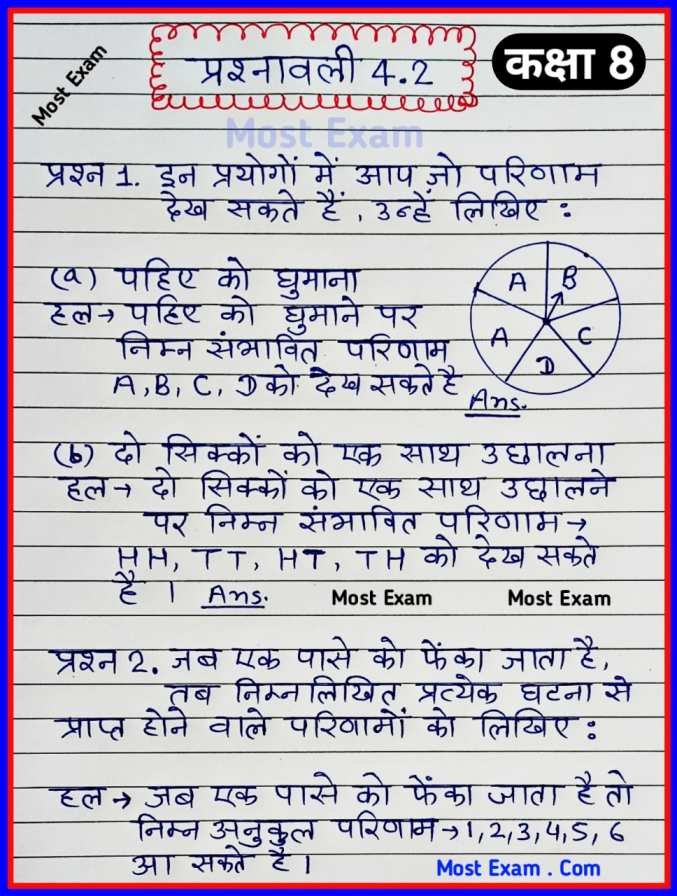 Most Exam
प्रश्नावली 4.2
कक्षा 8
Most Exam
प्रश्न 1. इन प्रयोगों में आप जो परिणाम
देख सकते हैं, उन्हें लिखिए :
(a) पहिए को घुमाना
हल→ पहिए को घुमाने पर
निम्न संभावित परिणाम
A, B, C, D को देख सकते है
Ans.
A B
A C
D
(b) दो सिक्कों को एक साथ उछालना
हल→ दो सिक्कों को एक साथ उछालने
पर निम्न संभावित परिणाम→
HH, TT, HT, TH को देख सकते
है । Ans. Most Exam Most Exam
प्रश्न 2. जब एक पासे को फेंका जाता है,
तब निम्नलिखित प्रत्येक घटना से
प्राप्त होने वाले परिणामों को लिखिए :
हल → जब एक पासे को फेंका जाता है तो
निम्न अनुकुल परिणाम →1,2,3,4,5,6
आ सकते है ।
Most Exam . Com